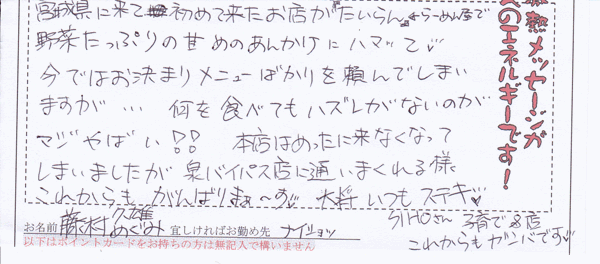 宮城県に来て初めて来たお店が たいらん らーめん店で
野菜たっぷりの甘めのあんかけにハマって♡
今ではお決まりメニューばかりを頼んでしまい
ますが … 何を食べてもハズレがないのが
マジやばい!? 本店はめったに来なくなって
しまいましたが 泉バイパス店に通いまくれる様
これからも がんばりまぁ〜す♡ 大将 いつも ステキ♡
SIHOさん 子育て&店
これからも ガンバです♡
お名前 藤村 久雄 めぐみ 宜しければお勤め先 ナイショッ
以下はポイントカードをお持ちの方は無記入で構いません
熱メッセージが
のエネルギーです!